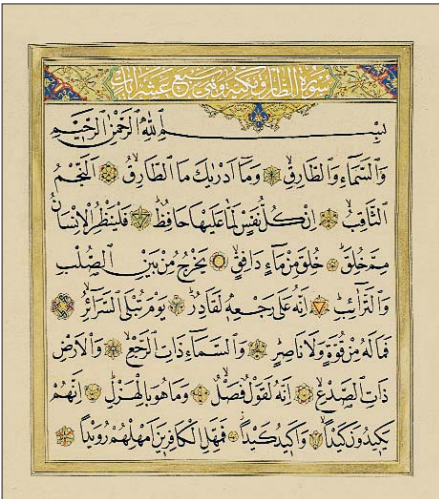 سورة الطارق مكية وهي سبع عشرة ايات
بسم الله الرحمن الرحيم
وَالسَّمَاءِ وَالطَّارِقِ وَمَا اَدْرٰيكَ مَا الطَّارِقُ اَلنَّجْمُ
الثَّاقِبُ اِنْ كُلُّ نَفْسٍ لَمَّا عَلَيْهَا حَافِظٌ فَلْيَنْظُرِ الْاِنْسَانُ
مِمَّ خُلِقَ خُلِقَ مِنْ مَاءٍ دَافِقٍ يَخْرُجُ مِنْ بَيْنِ الصُّلْبِ
وَالتَّرَائِبِ اِنَّهُ عَلٰى رَجْعِهِ لَقَادِرٌ يَوْمَ تُبْلَى السَّرَائِرُ
فَمَا لَهُ مِنْ قُوَّةٍ وَلَا نَاصِرٍ وَالسَّمَاءِ ذَاتِ الرَّجْعِ وَالْاَرْضِ
ذَاتِ الصَّدْعِ اِنَّهُ لَقَوْلٌ فَصْلٌ وَمَا هُوَ بِالْهَزْلِ اِنَّهُمْ
يَكِيدُونَ كَيْدًا وَاَكِيدُ كَيْدًا فَمَهِّلِ الْكَافِرِينَ اَمْهِلْهُمْ رُوَيْدًا